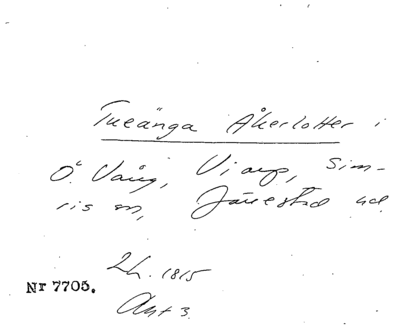 Tueänga Åkerlotter i
Ö. Vång, Viarp, Sim-
ris m, Järestad hd.
2h. 1815
Nr 7705.
Akt 3.